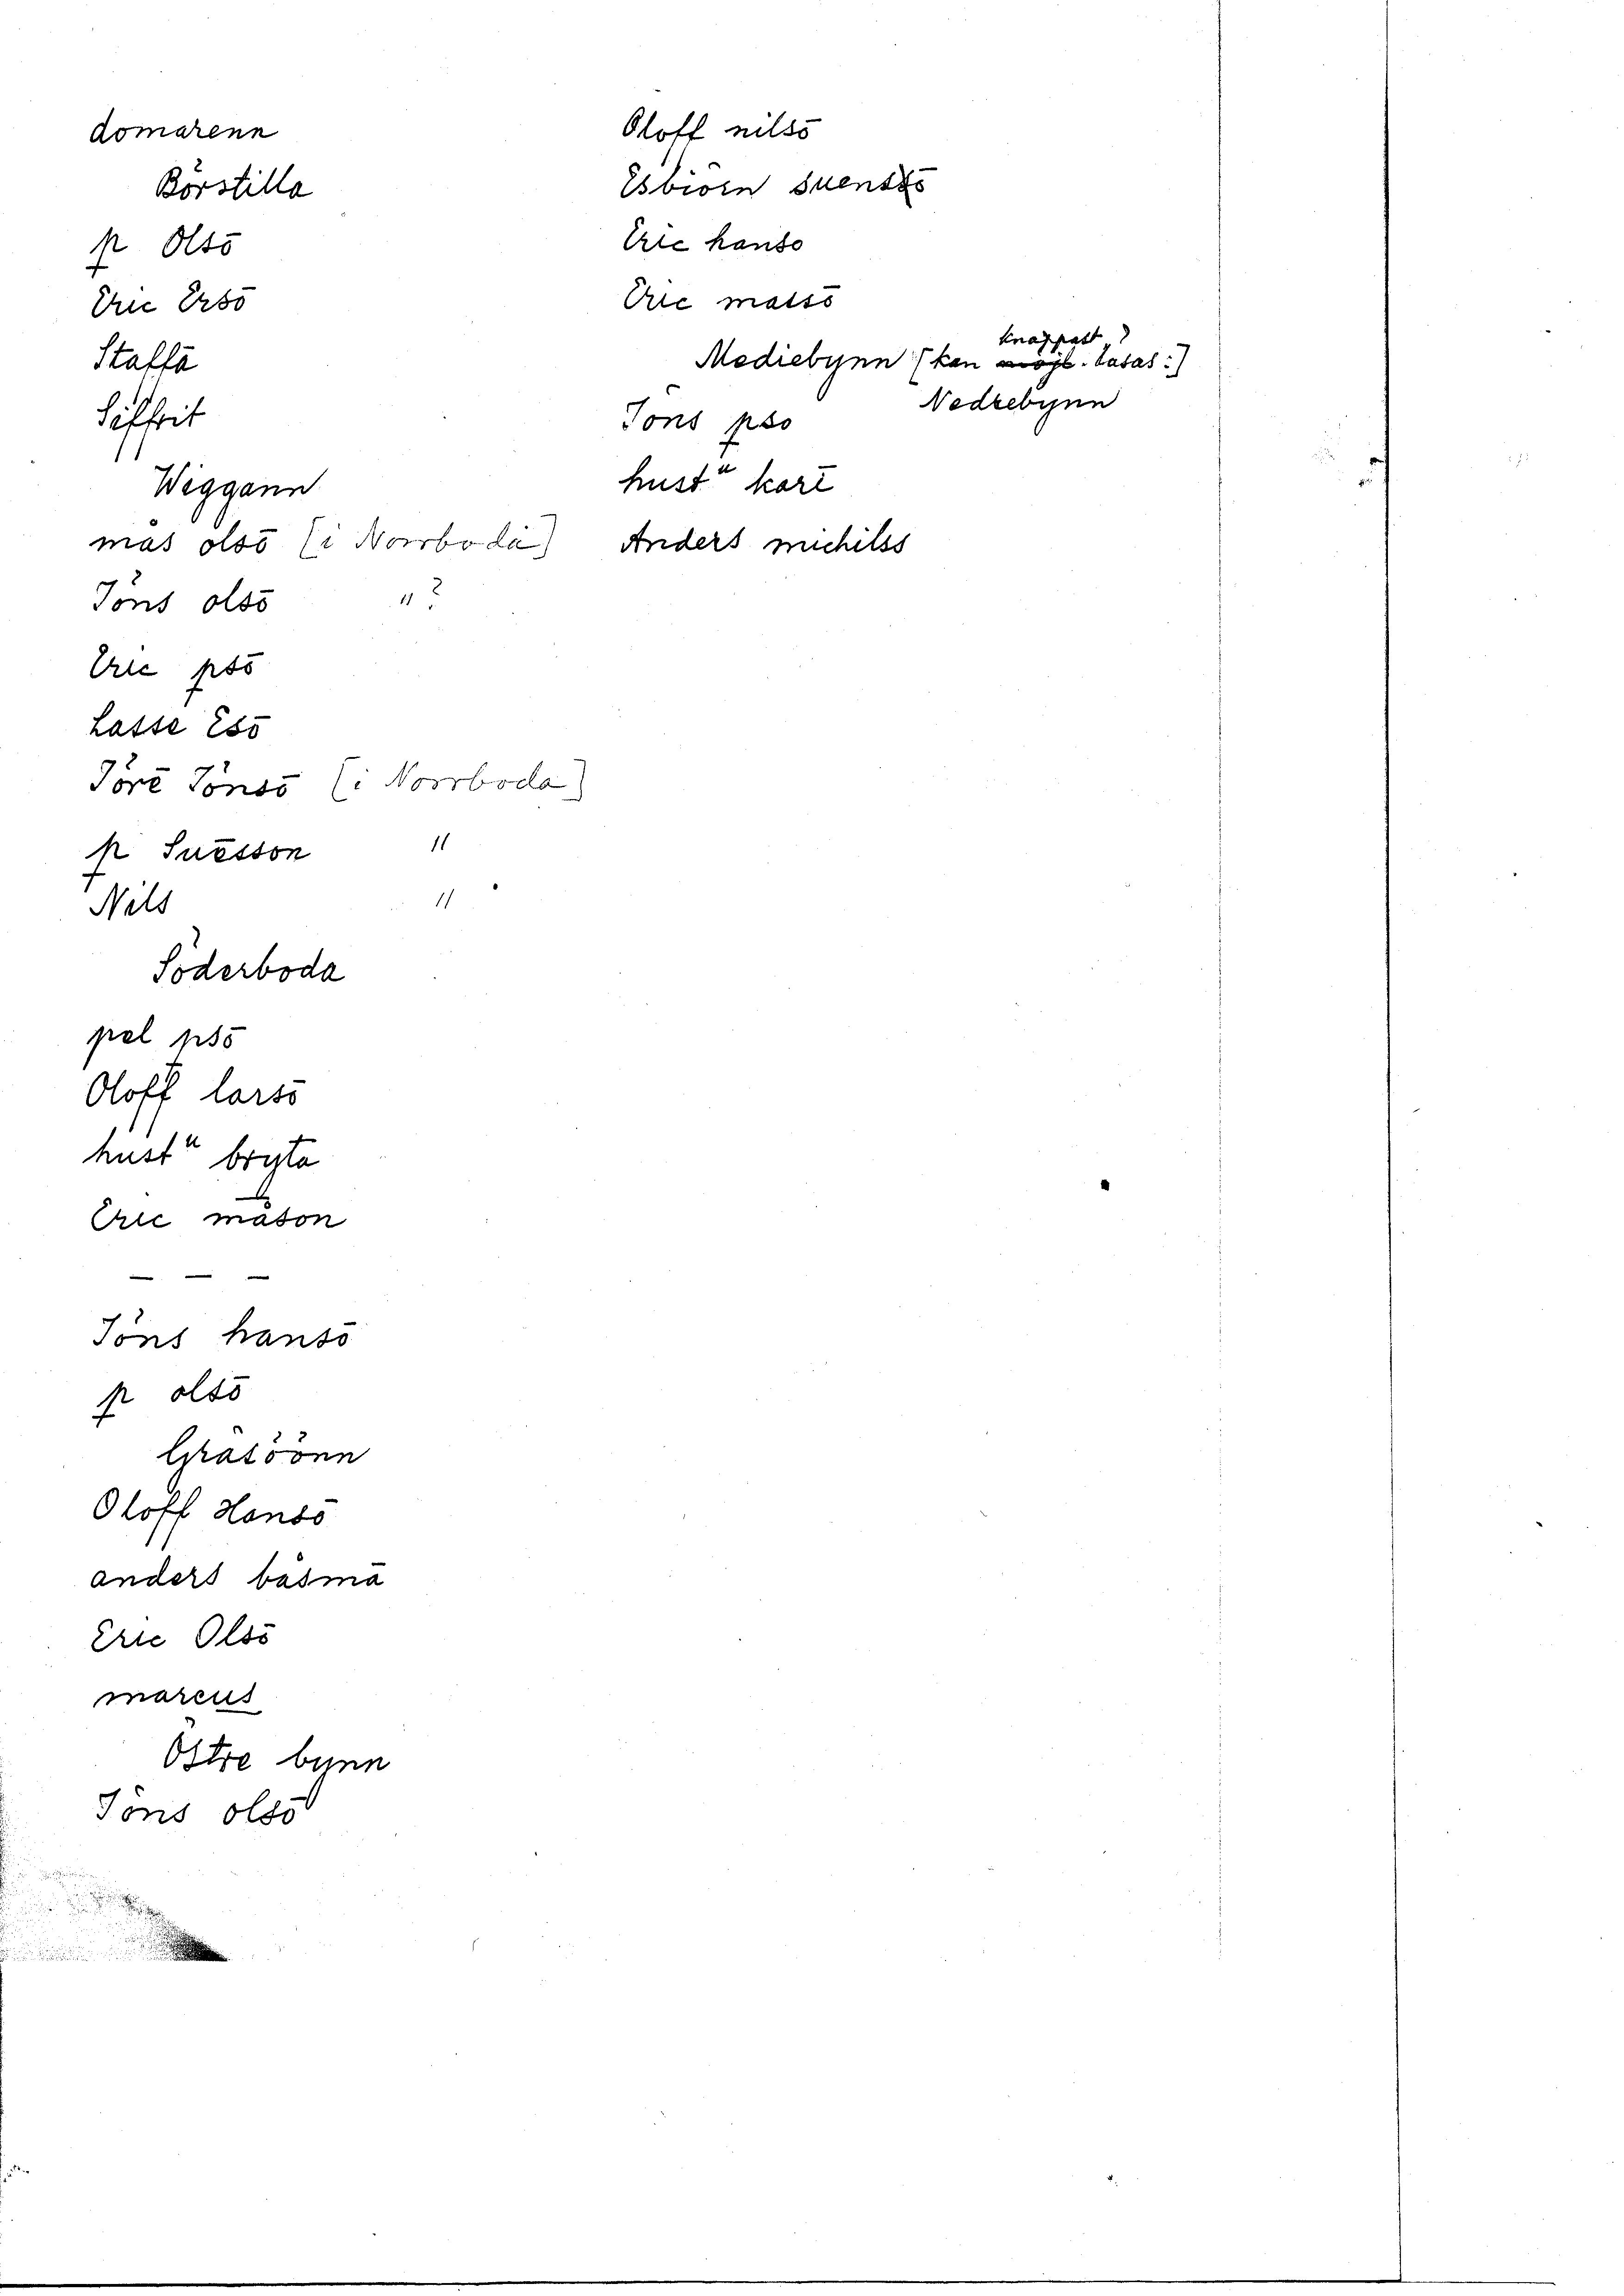 domarenn
Börstilla
p Olsō
Eric Ersō
Staffā
Siffrit
Wiggann
mås olsō [i Norrboda]
Jöns olsō " ?
Eric psō
Lasse Esō
Jörē Jönsō [i Norrboda]
p Suēsson "
Nils "
Söderboda
pel psō
Oloff larsō
hustᵘ bryta
Eric måson
— — —
Jöns hansō
p olsō
Gräsöönn
Oloff Hansō
anders båsmā
Eric Olsō
marcus
Östre bynn
Jöns olsō
Oloff nilsō
Esbiörn suenssō
Eric hanso
Eric matsō
knappast ?
Mediebynn [kan möjl. läsas:]
Nedrebynn
Jöns pso
hustᵘ karī
Anders michilss